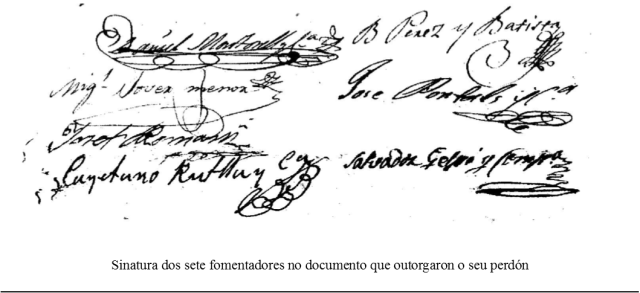 Daniel y Ca
B Perez y Batista
Migl Jover menor
Jose Pontals y Ca
Josef Roma
Cayetano Rutllay Ca
Salvador y Compa
Sinatura dos sete fomentadores no documento que outorgaron o seu perdón